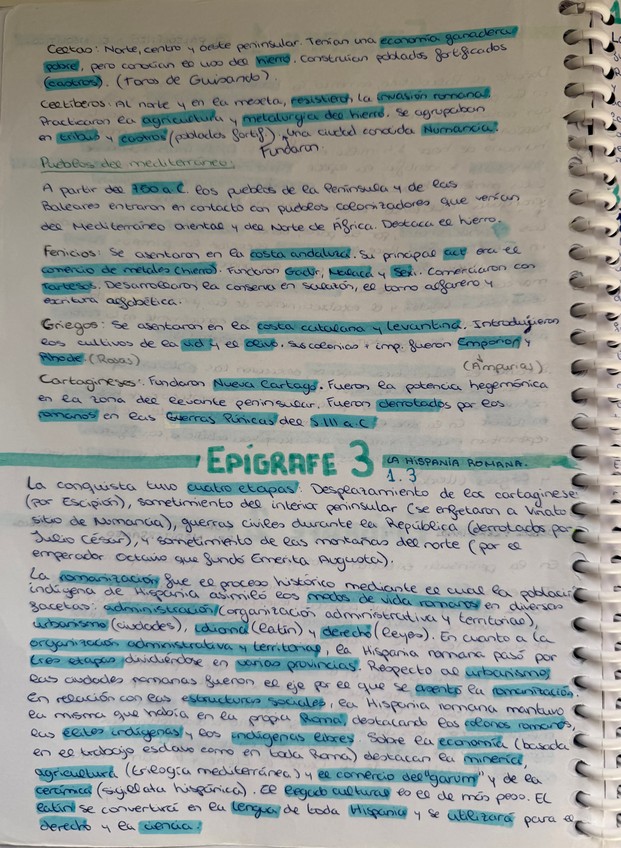 Celtas: Norte, centro y oeste peninsular. Tenían una economía ganadera
pobre, pero conocían el uso del hierro. Construían poblados fortificados
(castros). (Toros de Guisando).
Celtíberos: Al norte y en la meseta, resistieron la invasión romana.
Practicaron la agricultura y metalurgia del hierro. Se agrupaban
en tribus y castros (poblados fortif). Una ciudad conocida Numancia.
Fundaron
Pueblos del mediterraneo:
A partir del 700 a.C. los pueblos de la Península y de las
Baleares entraron en contacto con pueblos colonizadores que venían
del Mediterráneo oriental y del Norte de África. Destaca el hierro.
Fenicios: Se asentaron en la costa andaluza. Su principal act era el
comercio de metales (hierro). Fundaron Gadir, Malaca y Sexi. Comerciaron con
Tartesos. Desarrollaron la conserva en salazón, el torno alfarero y
escritura alfabética.
Griegos: Se asentaron en la costa catalana y levantina. Introdujeron
los cultivos de la vid y el olivo. Sus colonias + imp. fueron Emporion y
Rhode (Rosas) (Ampurias)
Cartagineses: Fundaron Nueva Cartago. Fueron la potencia hegemónica
en la zona del levante peninsular. Fueron derrotados por los
romanos en las Guerras Púnicas del S.III a.C
EPÍGRAFE 3 LA HISPANIA ROMANA.
1.3
La conquista tuvo cuatro etapas: Desplazamiento de los cartagineses
(por Escipión), sometimiento del interior peninsular (se enfretaron a Viriato
sitio de Numancia), guerras civiles durante la República (derrotados por
Julio César), y sometimiento de las montañas del norte (por el
emperador Octavio que fundó Emerita Augusta).
La romanización fue el proceso histórico mediante el cual la població
indígena de Hispania asimiló los modos de vida romanos en diversas
facetas: administración (organización administrativa y territorial),
urbanismo (ciudades), idioma (latín) y derecho (leyes). En cuanto a la
organización administrativa y territorial, la Hispania romana pasó por
tres etapas dividiéndose en varias provincias. Respecto al urbanismo
las ciudades romanas fueron el eje por el que se asentó la romanización.
En relación con las estructuras sociales, la Hispania romana mantuvo
la misma que había en la propia Roma, destacando los colonos romanos,
las elites indígenas y los indígenas libres. Sobre la economía (basada
en el trabajo esclavo como en toda Roma) destacan la minería,
agricultura (trilogía mediterránea) y el comercio del "garum" y de la
cerámica (sigillata hispánica). El legado cultural es el de más peso. EL
latín se convertirá en la lengua de toda Hispania y se utilizará para el
derecho y la ciencia.